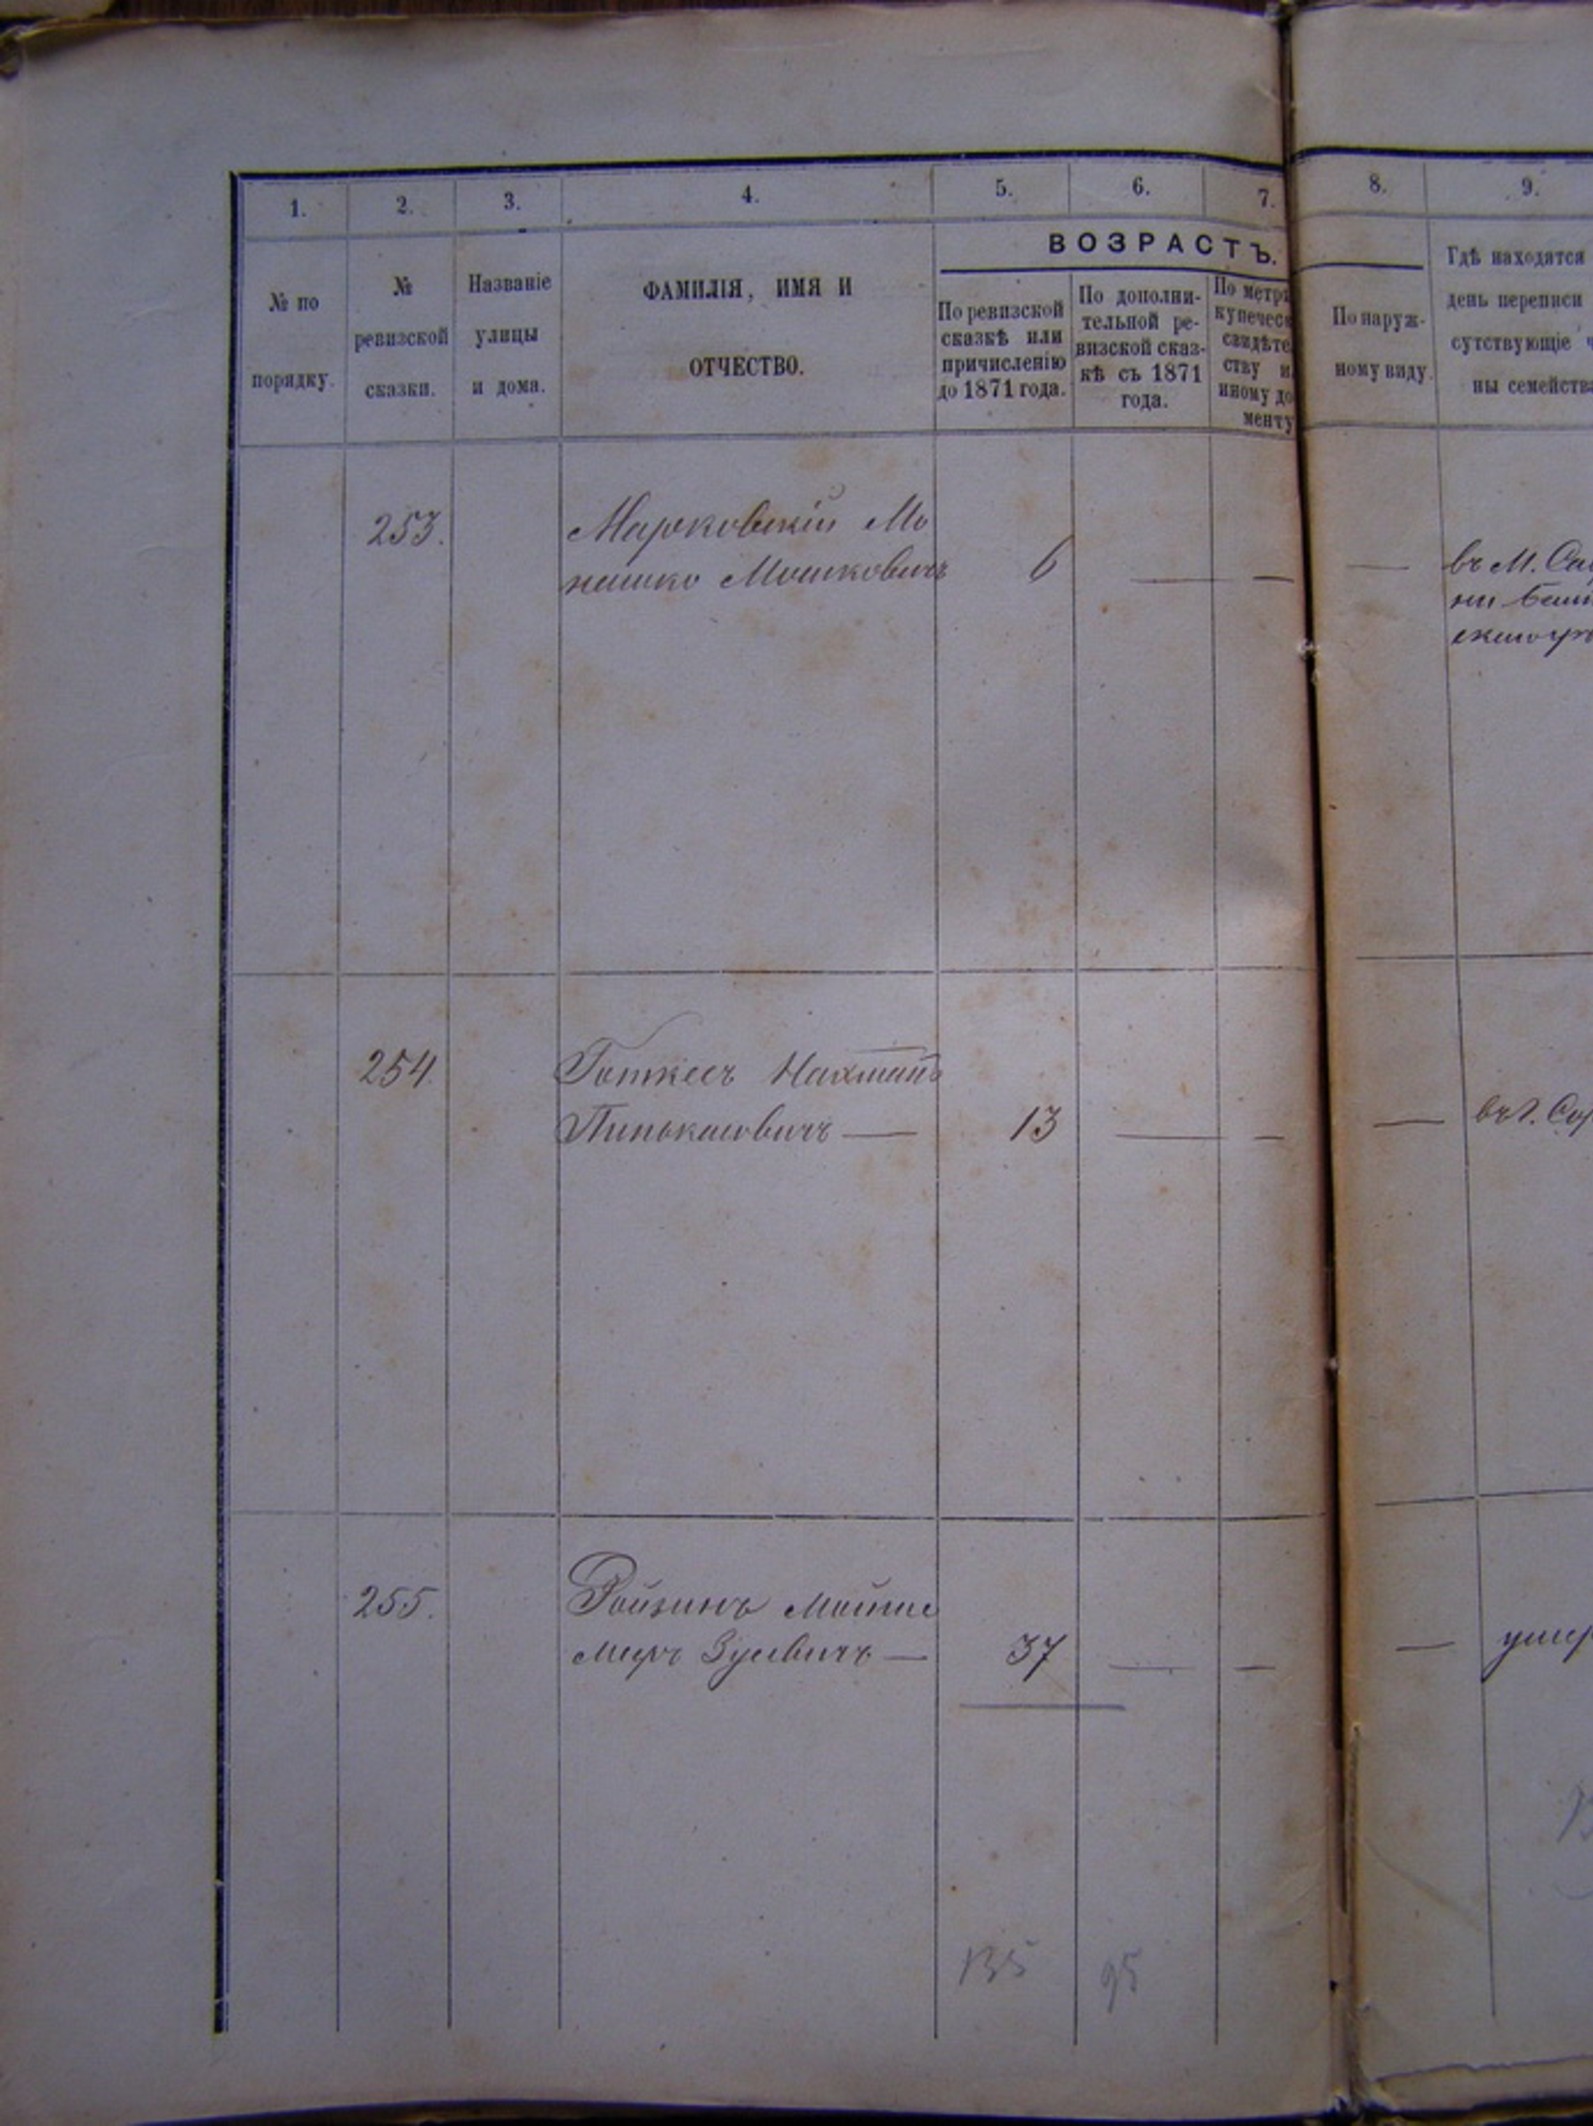 1. 2. 3. 4. 5. 6. 7. 8. 9.
№ по порядку.
№ ревизской сказки.
Названіе улицы и дома.
ФАМИЛІЯ, ИМЯ И
ОТЧЕСТВО.
ВОЗРАСТЪ.
По ревизской
сказкѣ или
причисленію
до 1871 года.
По дополни-
тельной ре-
визской сказ-
кѣ съ 1871
года.
По метри
купеческ
свидѣте
ству и
иному до
менту
По наруж-
ному виду.
Гдѣ находятся
день переписи
сутствующіе ч
ны семейства
253. Марковскій Мо
нашко Мошковичъ 6 — — — въ М. Са
254 Готкесъ Нахманъ
Пинькасовичъ — 13 — — — въ г.
255. Ройзинъ Мойше
Меръ Зусевичъ — 37 — — — умер
135 95